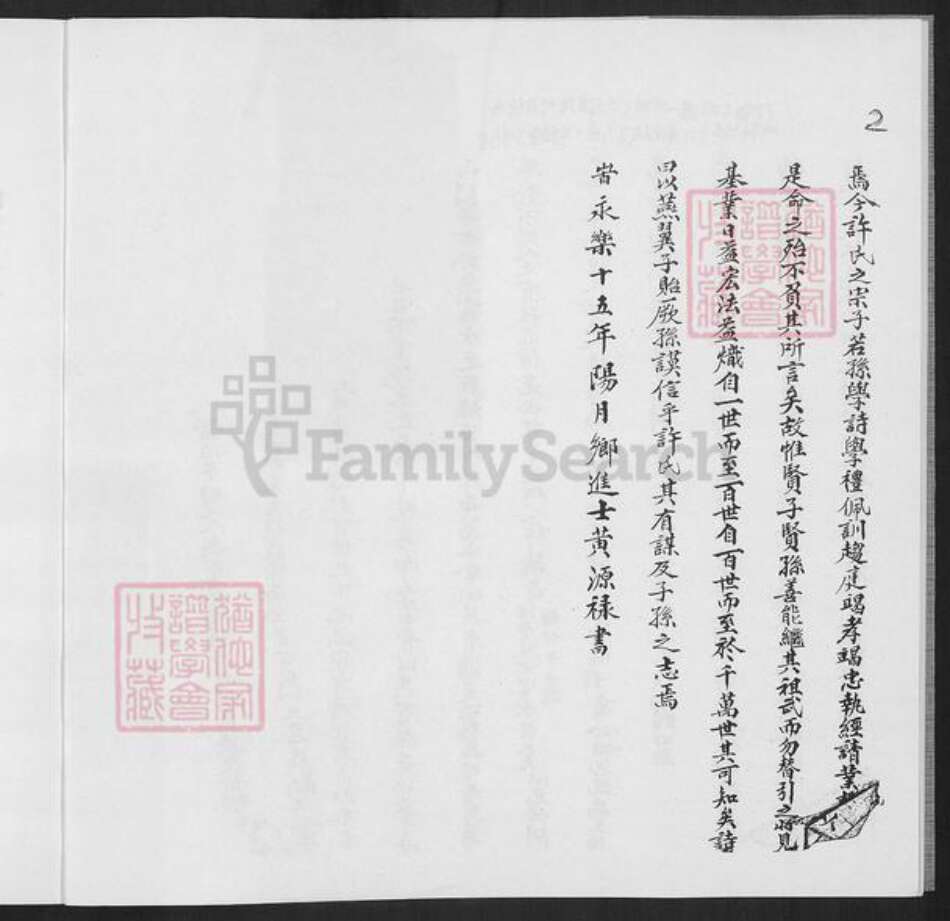 2
焉今許氏之宗子若孫學詩學禮佩訓趨庭竭孝竭忠執經請業
是命之殆不負其所言矣故惟賢子賢孫善能繼其祖武而勿替引之將見
基業日益宏法益熾自一世而至百世自百世而至於千萬世其可知矣詩
曰以燕翼子貽厥孫謨信乎許氏其有謀及子孫之志焉
旹永樂十五年陽月鄉進士黃源祿書
猶他家譜學會收藏
猶他家譜學會收藏
FamilySearch